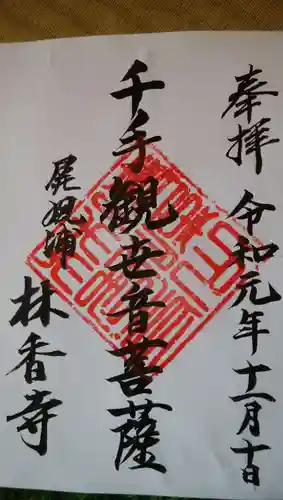 奉拝 令和元年十一月十日
千手観世音菩薩
尾見浦
林香寺